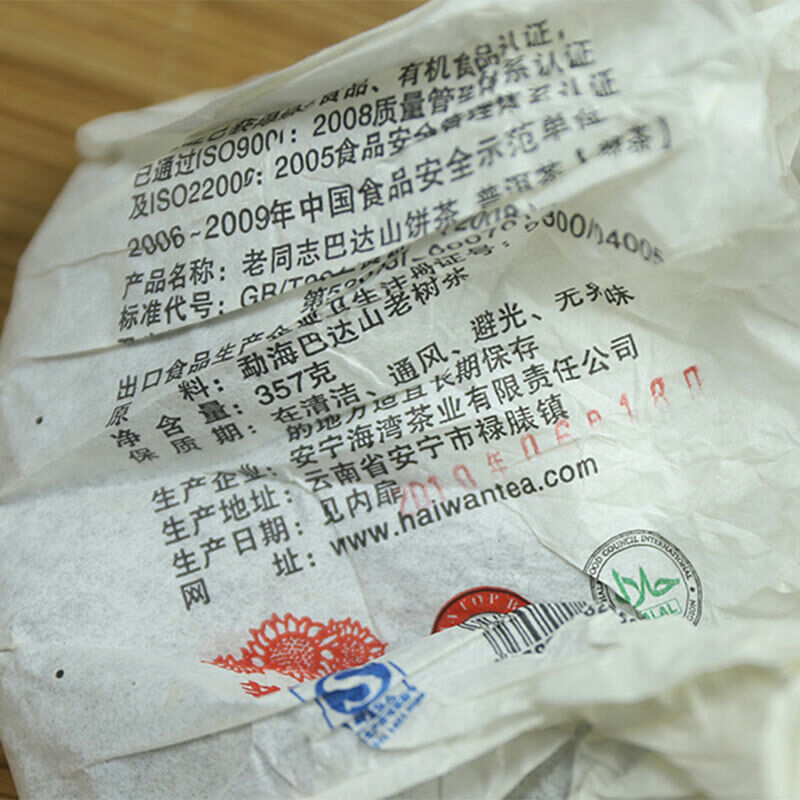 食品、有机食品认证,
已通过ISO9001:2008质量管理体系认证
及ISO22000:2005食品安全管理体系认证
2006~2009年中国食品安全示范单位
产品名称:老同志巴达山饼茶 普洱茶【 茶】
标准代号:GB/T
出口食品生产企业卫生注册证号:
原 料:勐海巴达山老树茶
净含量:357克
保质期:在清洁、通风、避光、无异味
的地方适宜长期保存
生产企业:安宁海湾茶业有限责任公司
生产地址:云南省安宁市禄脿镇
生产日期:见内扉
2010年06
网 址:www.haiwantea.com
FOOD COUNCIL INTERNATIONAL
حلال
HALAL
TOP